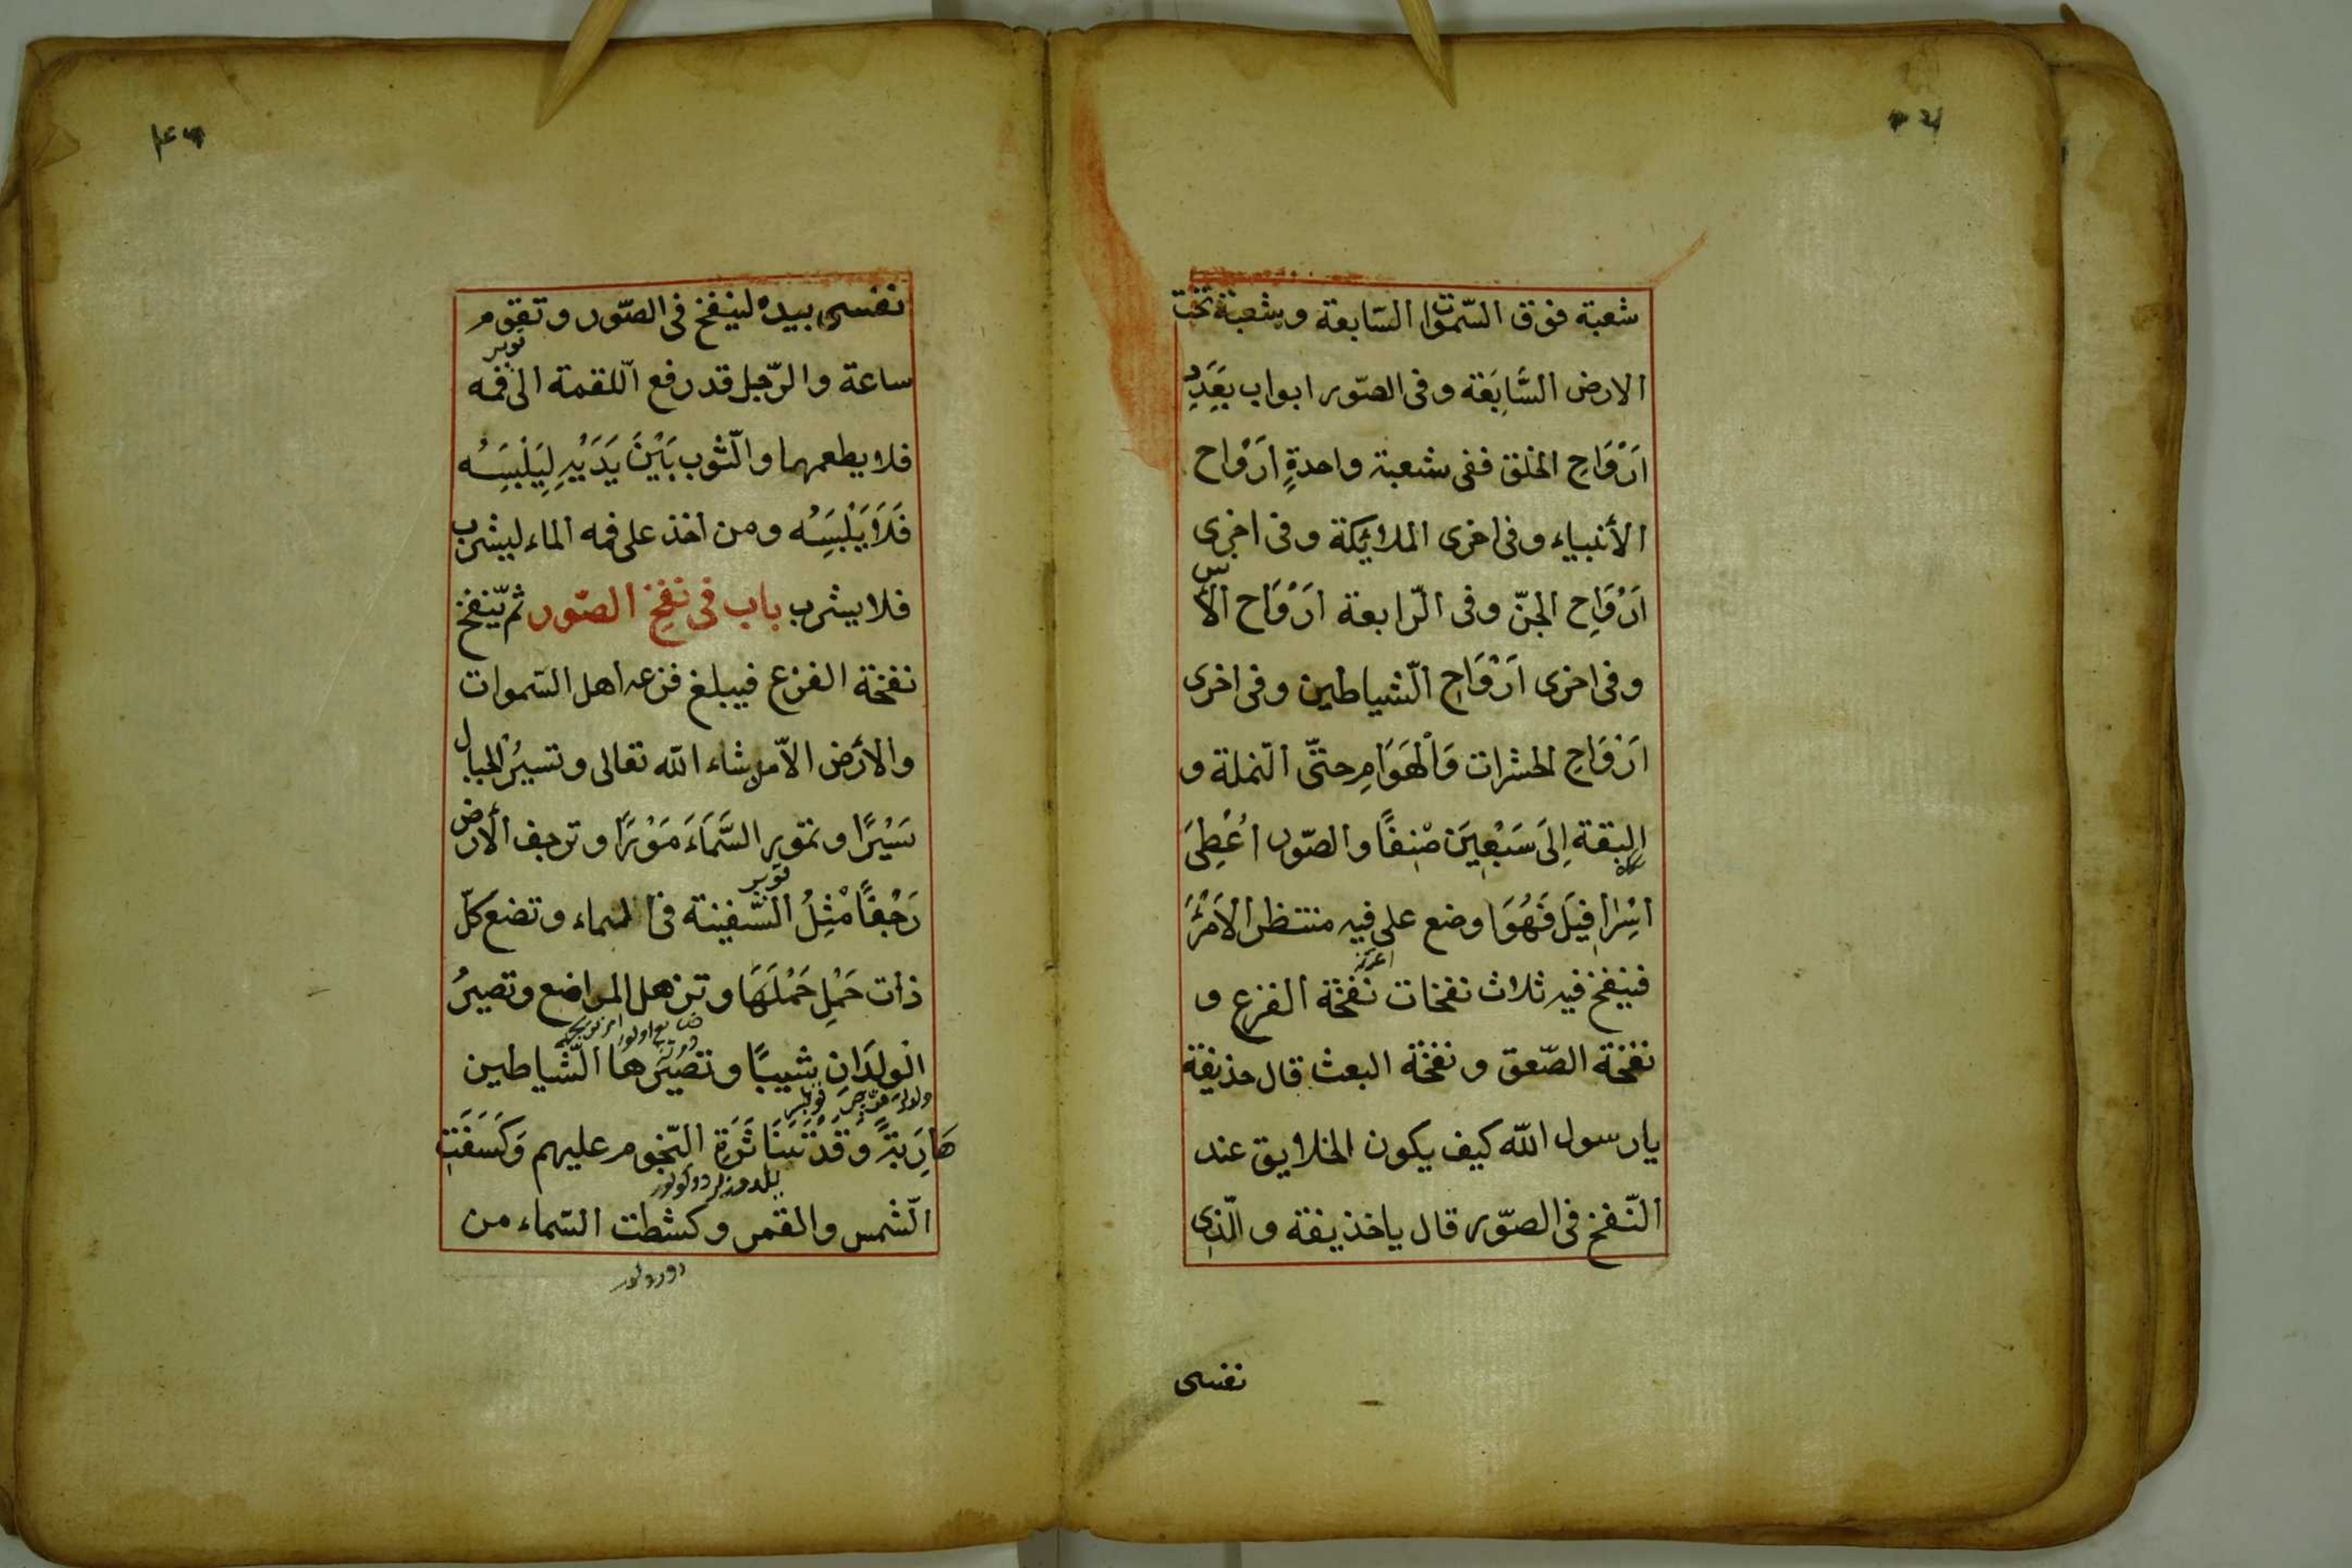 شعبة فوق السّموات السّابعة وشعبة تحت
الارض السَّابِعَة وفى الصّور ابواب بِعَدَدِ
اَرْوَاحِ الخلق ففى شعبة واحدةٍ اَرْوَاح
الأنبياء وفى اخرى الملائِكة وفى اخرى
اَرْوَاحِ الجنّ وفى الرّابعة اَرْوَاح الأنس
وفى اخرى اَرْوَاحِ الشّياطين وفى اخرى
اَرْوَاحِ الحشرات وَالْهَوَامِ حتىّ النّملة و
البقة اِلَى سَبْعِينَ صْنِفًا والصّور اُعْطِىَ
اسْرافِيلَ فَهُوَ وضع على فيه منتظر الاَمْرَ
فينفخ فيه ثلاث نفخات نفخة الفزع و
نفخة الصّعق ونفخة البعث قال حذيفة
يا رسول اللّه كيف يكون الخلايق عند
النّفخ فى الصّور قال ياخذيفة والّذى
نفسى
نفسى بيده لينفخ فى الصّور وتقوم
ساعة والرّجل قد رفع اللّقمة الى فمه
فلا يطعمهما والثّوب بَيْنَ يَدَيْهِ لِيَلْبِسَهُ
فَلَا يَلْبَسِهُ ومن اخذ على فمه الماء ليشرب
فلا يشرب باب فى نَفْخِ الصّور ثم يّنفخ
نفخة الفزع فيبلغ فزعه اهل السّموات
والأرض الاّ من شاء اللّه تعالى وتسيرُ الجبال
سَيْرًا وتمور السَّمَاءَ مَوْرًا وترجف الأرض
رَجْفًا مْثِلُ السّفينة فى الماء وتضع كلّ
ذات حَمْلِ حَمْلَهَا وتزهل المراضع وتصيرُ
الْولِدَانِ شيبًا وتصيرها الشّياطين
هَارِبَةً وَقَدْ تَنَاثَرَةِ النّجوم عليهم وَكَسَفَتِ
الشّمس والقمر وكشطت السّماء من